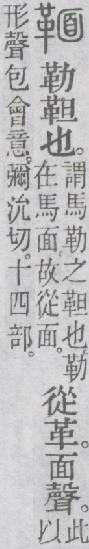 䩏 勒靼也。謂馬勒之靼也。勒在馬面。故從面。從革。面聲。此以
形聲包會意。彌沇切。十四部。